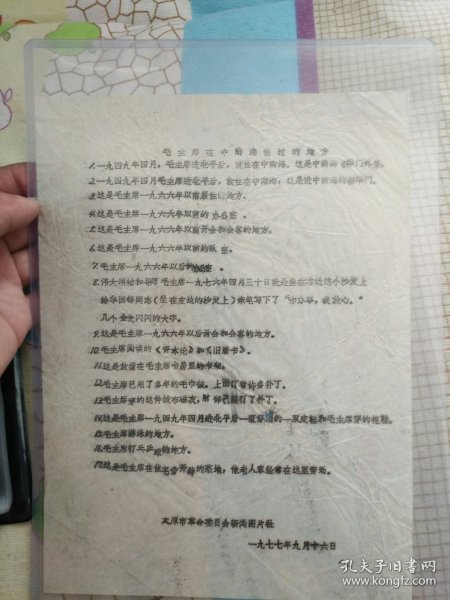 毛主席在中南海住过的地方
1.一九四九年四月，毛主席进北平后，就住在中南海。这是中南海新华门外景。
2.一九四九年四月毛主席进北平后，就住在中南海，这是进中南海的新华门。
3.这是毛主席一九六六年以前居住的地方。
4.这是毛主席一九六六年以前的办公室。
5.这是毛主席一九六六年以前开会和会客的地方。
6.这是毛主席一九六六年以前的 室。
7.毛主席一九六六年以后的 室。
8.伟大领袖和导师毛主席一九七六年四月三十日就是坐在右边这个沙发上
给华国锋同志（坐在左边的沙发上）亲笔写下了“你办事，我放心。”
几个金光闪闪的大字。
9.这是毛主席一九六六年以后开会和会客的地方。
10.毛主席阅读的《资本论》和《旧唐书》。
11.这是放置在毛主席书房里的书柜。
12.毛主席已用了多年的毛巾被。上面打着许多补丁。
13.毛主席穿的这件绒布睡衣，后 都已经打了补丁。
14.这是毛主席一九四九年四月进北平后一直穿 的一双皮鞋和毛主席穿的拖鞋。
15.毛主席游泳的地方。
16.毛主席打乒乓球的地方。
17.这是毛主席在住宅旁开辟的菜地，他老人家经常在这里劳动。
太原市革命委员会新闻图片社
一九七七年九月十六日
孔夫子旧书网
www.kongfz.com